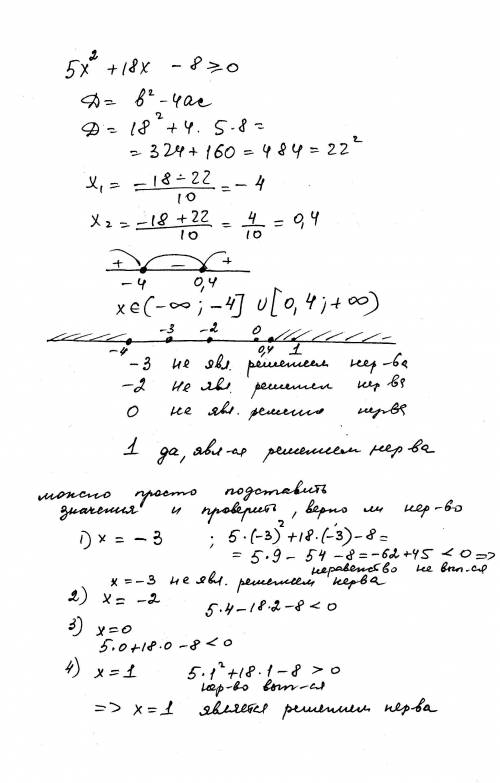 5x² + 18x - 8 ≥ 0
D = b² - 4ac
D = 18² + 4 · 5 · 8 =
= 324 + 160 = 484 = 22²
x₁ = (-18 - 22)/10 = -4
x₂ = (-18 + 22)/10 = 4/10 = 0,4
+ - +
-4 0,4
x ∈ (-∞; -4] ∪ [0,4; +∞)
-4 -3 -2 0 0,4 1
-3 не явл. решением нер-ва
-2 не явл. решением нер-ва
0 не явл. решением нер-ва
1 да, явл-ся решением нер-ва
можно просто подставить
значения и проверить, верно ли нер-во
1) x = -3 ; 5·(-3)² + 18·(-3) - 8 =
= 5·9 - 54 - 8 = -62 + 45 < 0 =>
неравенство не вып-ся
x = -3 не явл. решением нер-ва
2) x = -2 5·4 - 18·2 - 8 < 0
3) x = 0
5·0 + 18·0 - 8 < 0
4) x = 1 5·1² + 18·1 - 8 > 0
нер-во вып-ся
=> x = 1 является решением нер-ва